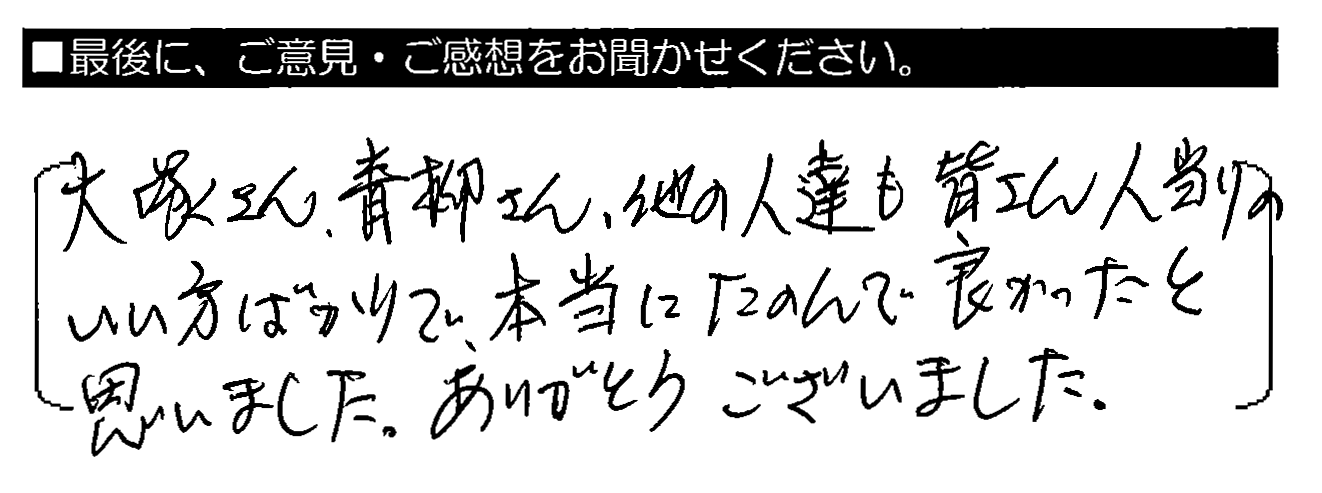 ■最後に、ご意見・ご感想をお聞かせください。
大塚さん、青柳さん、他の人達も皆さん人当りの
いい方ばかりで、本当にたのんで良かったと
思いました。ありがとうございました。